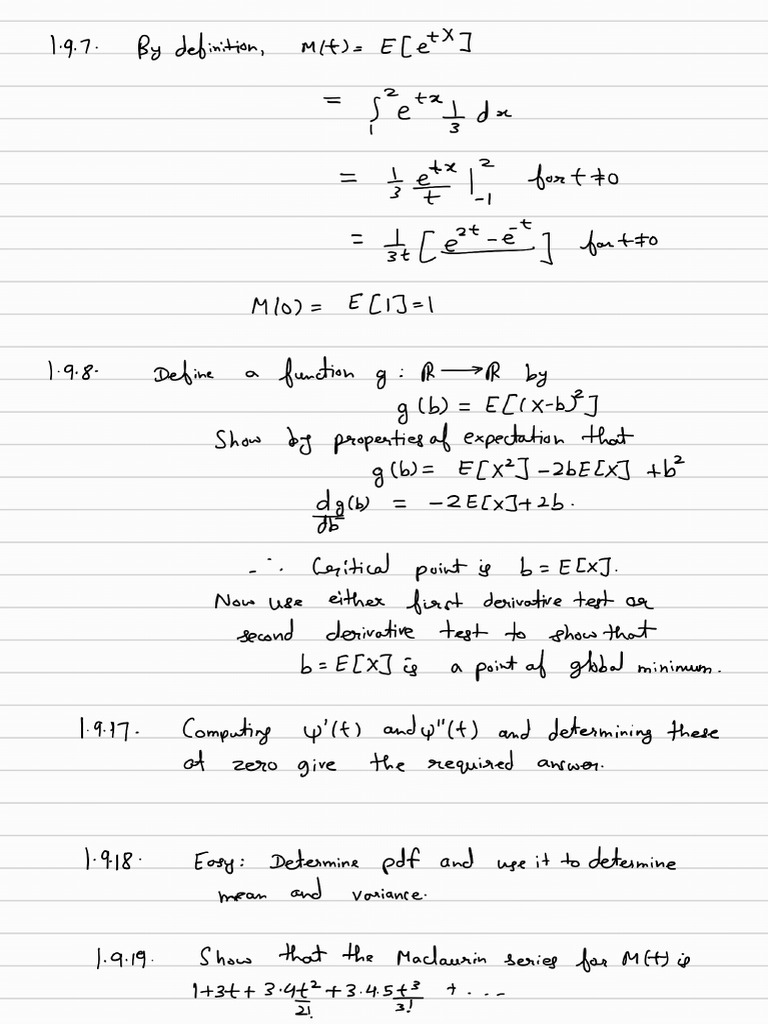 1.9.7. By definition, M(t) = E[e^{tX}]
= ∫_1^2 e^{tx} 1/3 dx
= 1/3 e^{tx}/t |_{-1}^2 for t≠0
= 1/3t [e^{2t} - e^{-t}] for t≠0
M(0) = E[1] = 1
1.9.8. Define a function g : ℝ → ℝ by
g(b) = E[(X-b)^2]
Show by properties of expectation that
g(b) = E[X^2] - 2bE[X] + b^2
dg/db (b) = -2E[X] + 2b.
∴ Critical point is b = E[X].
Now use either first derivative test or
second derivative test to show that
b = E[X] is a point of global minimum.
1.9.17. Computing ψ'(t) and ψ''(t) and determining these
at zero give the required answer.
1.9.18. Easy: Determine pdf and use it to determine
mean and variance.
1.9.19. Show that the Maclaurin series for M(t) is
1+3t+ 3.4t^2/2! + 3.4.5t^3/3! + ...